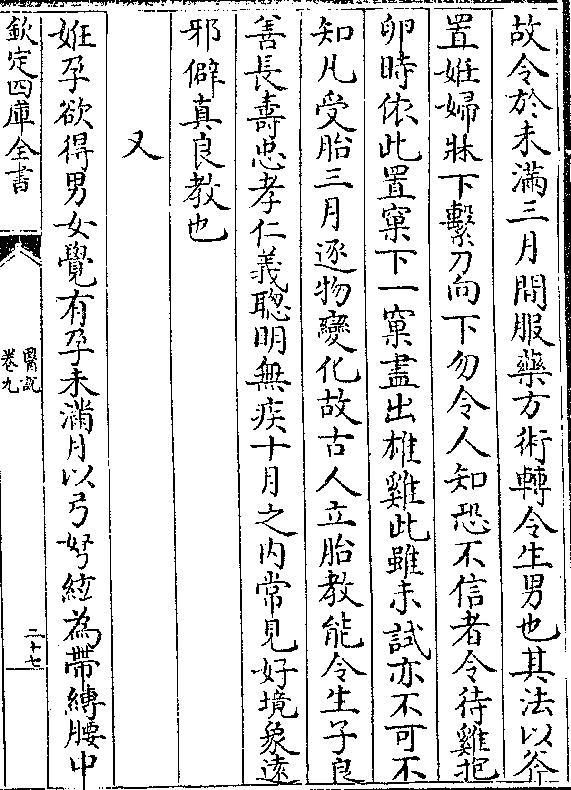 故令於未滿三月間服藥方術轉令生男也其法以斧
置姙婦牀下繫刀向下勿令人知恐不信者令待雞抱
卵時依此置窠下一窠盡出雄雞此雖未試亦不可不
知凡受胎三月逐物變化故古人立胎教能令生子良
善長壽忠孝仁義聰明無疾十月之内常見好境象遠
邪僻真良教也
又
姙孕欲得男女覺有孕未滿月以弓弩絃為帶縛腰中
欽定四庫全書
醫說
卷九
二十七